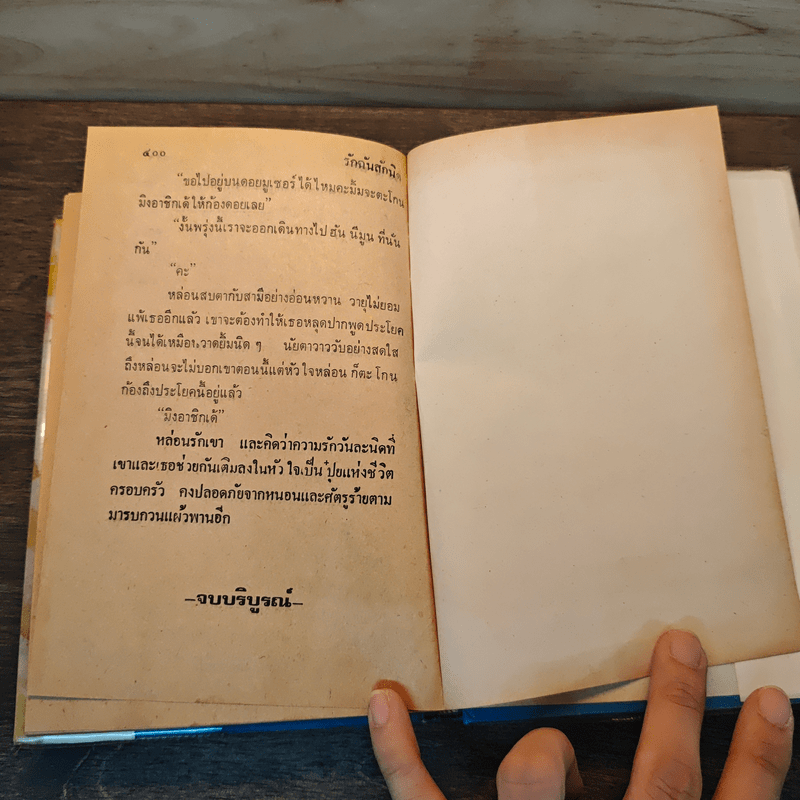 ๔๐๐
รักฉันสักนิด
“ขอไปอยู่บนดอยมูเซอร์ ได้ไหมคะมิ้มจะตะโกน
มิงอาชิกเด้ ให้ก้องดอยเลย”
“งั้นพรุ่งนี้เราจะออกเดินทางไป ฮัน นีมูน ที่นั่น
กัน”
“คะ”
หล่อนสบตากับสามีอย่างอ่อนหวาน วายุไม่ยอม
แพ้เธออีกแล้ว เขาจะต้องทำให้เธอหลุดปากพูดประโยค
นี้จนได้เหมือน วาดยิ้มนิด ๆ นัยตาวาววับอย่างสดใส
ถึงหล่อนจะไม่บอกเขาตอนนี้แต่หัวใจหล่อน ก็ตะโกน
ก้องถึงประโยคนี้อยู่แล้ว
“มิงอาชิกเด้”
หล่อนรักเขา และคิดว่าความรักวันละนิดที่
เขาและเธอช่วยกันเติมลงในหัวใจเป็น ปุ๋ยแห่งชีวิต
ครอบครัว คงปลอดภัยจากหนอนและศัตรูร้ายตาม
มารบกวนแผ้วพานอีก
–จบบริบูรณ์–